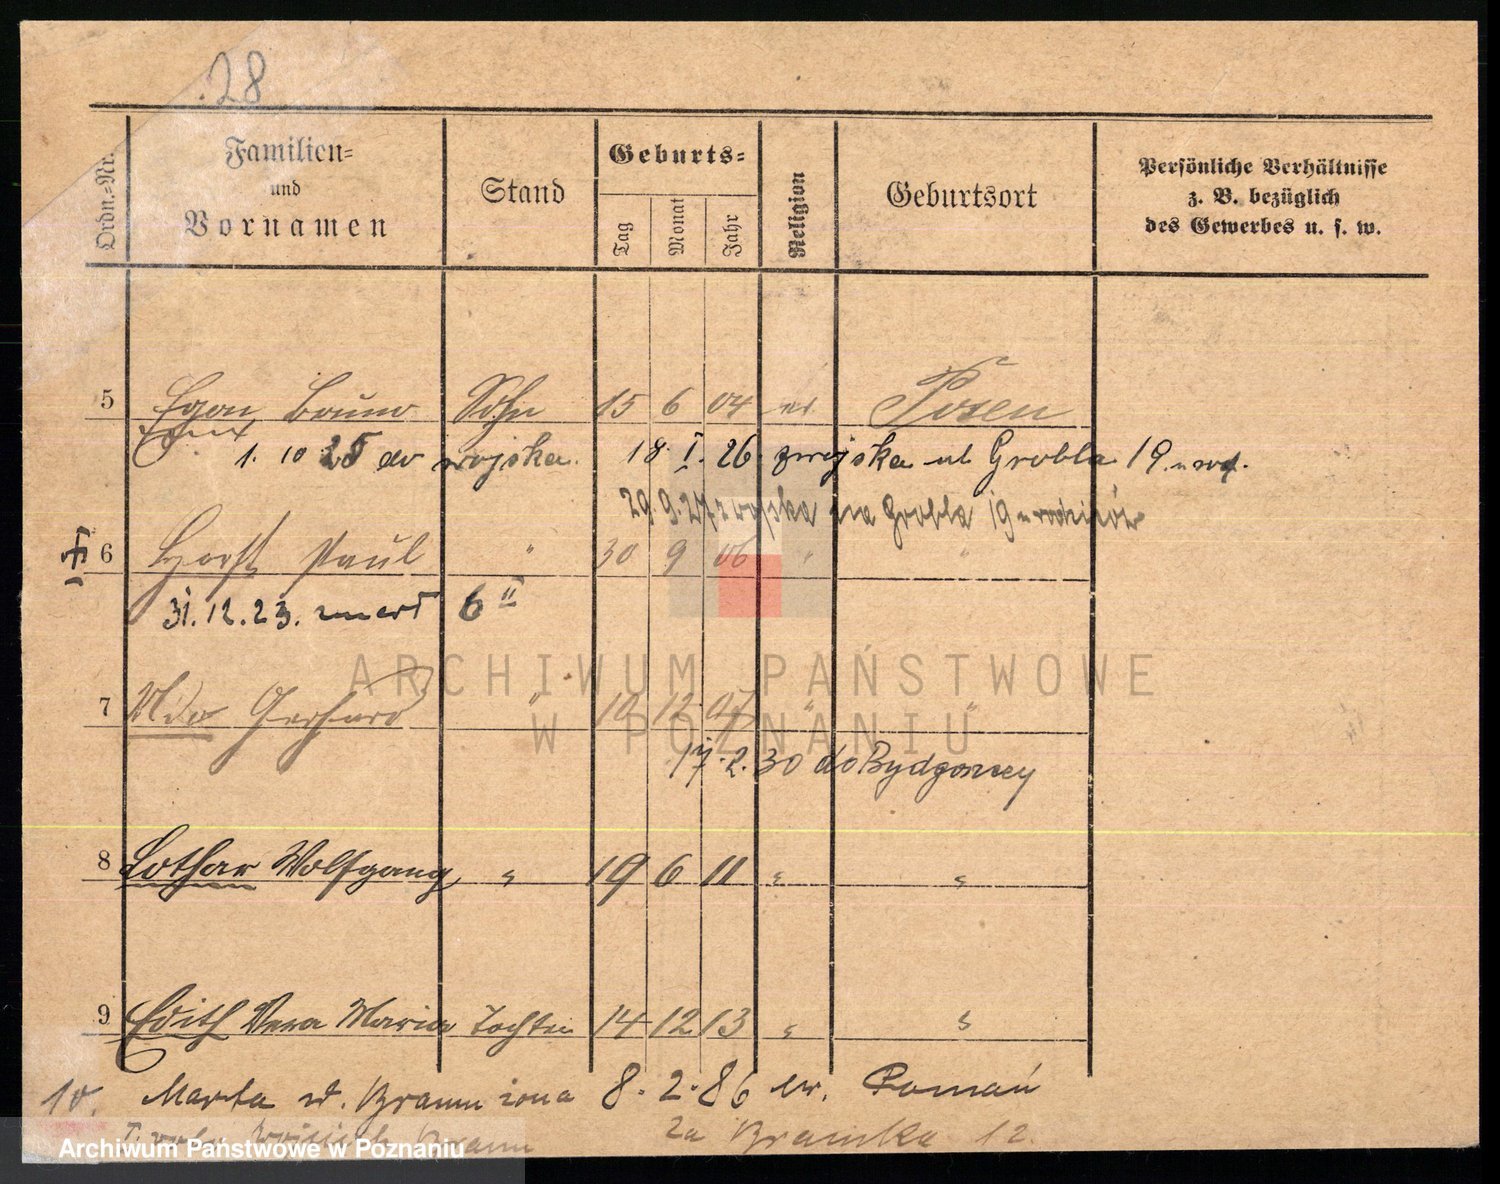 28
Ordn.-Nr. Familien- und Vornamen Stand Geburts- Tag Monat Jahr Religion Geburtsort Persönliche Verhältnisse z. B. bezüglich des Gewerbes u. s. w.
5 Egon Bruno Sohn 15 6 04 ev. Posen
1. 10 25 do wojska. 18. I. 26. z wojska ul Grobla 19 u rodz.
29.9.27 z wojska na Grobla 19 u rodziców
6 Horst Paul " 30 9 06 " "
31. 12. 23. zmarł 6 II
ARCHIWUM PAŃSTWOWE
7 Udo Gerhard " 10 12 07 " "
W POZNANIU
17.2.30 do Bydgoszczy
8 Lothar Wolfgang " 19 6 11 " "
9 Edith Vera Maria Tochter 14 12 13 " "
10. Marta d. Bramm żona 8. 2. 86 ew. Poznań
za Bramka 12.
Archiwum Państwowe w Poznaniu